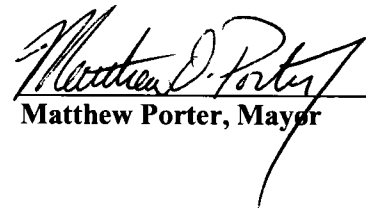 Matthew D. Porter
Matthew Porter, Mayor